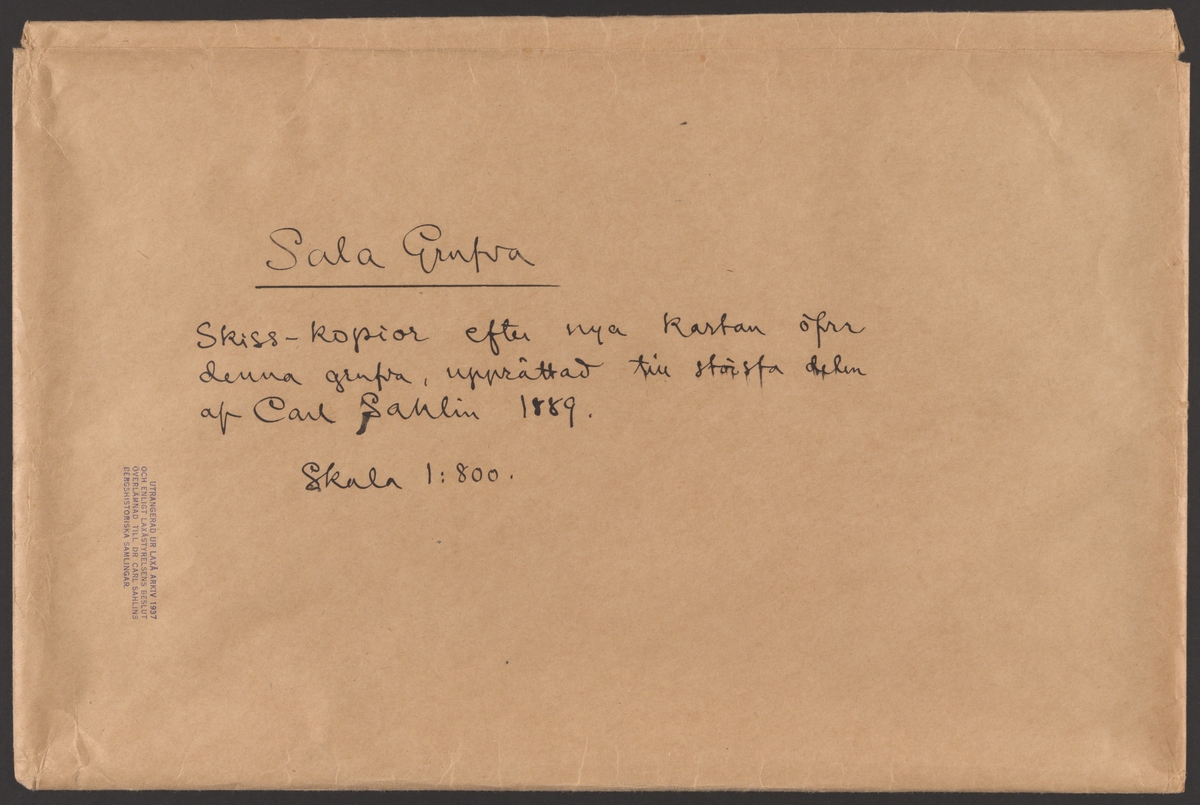 Sala Grufva
Skiss-kopior efter nya kartan öfver
denna grufva, upprättad till största delen
af Carl Sahlin 1889.
Skala 1:800.
UTRANGERAD UR LAXÅ ARKIV 1937
OCH ENLIGT LAXÅSTYRELSENS BESLUT
ÖVERLÄMNAD TILL DR CARL SAHLINS
BERGSHISTORISKA SAMLINGAR.